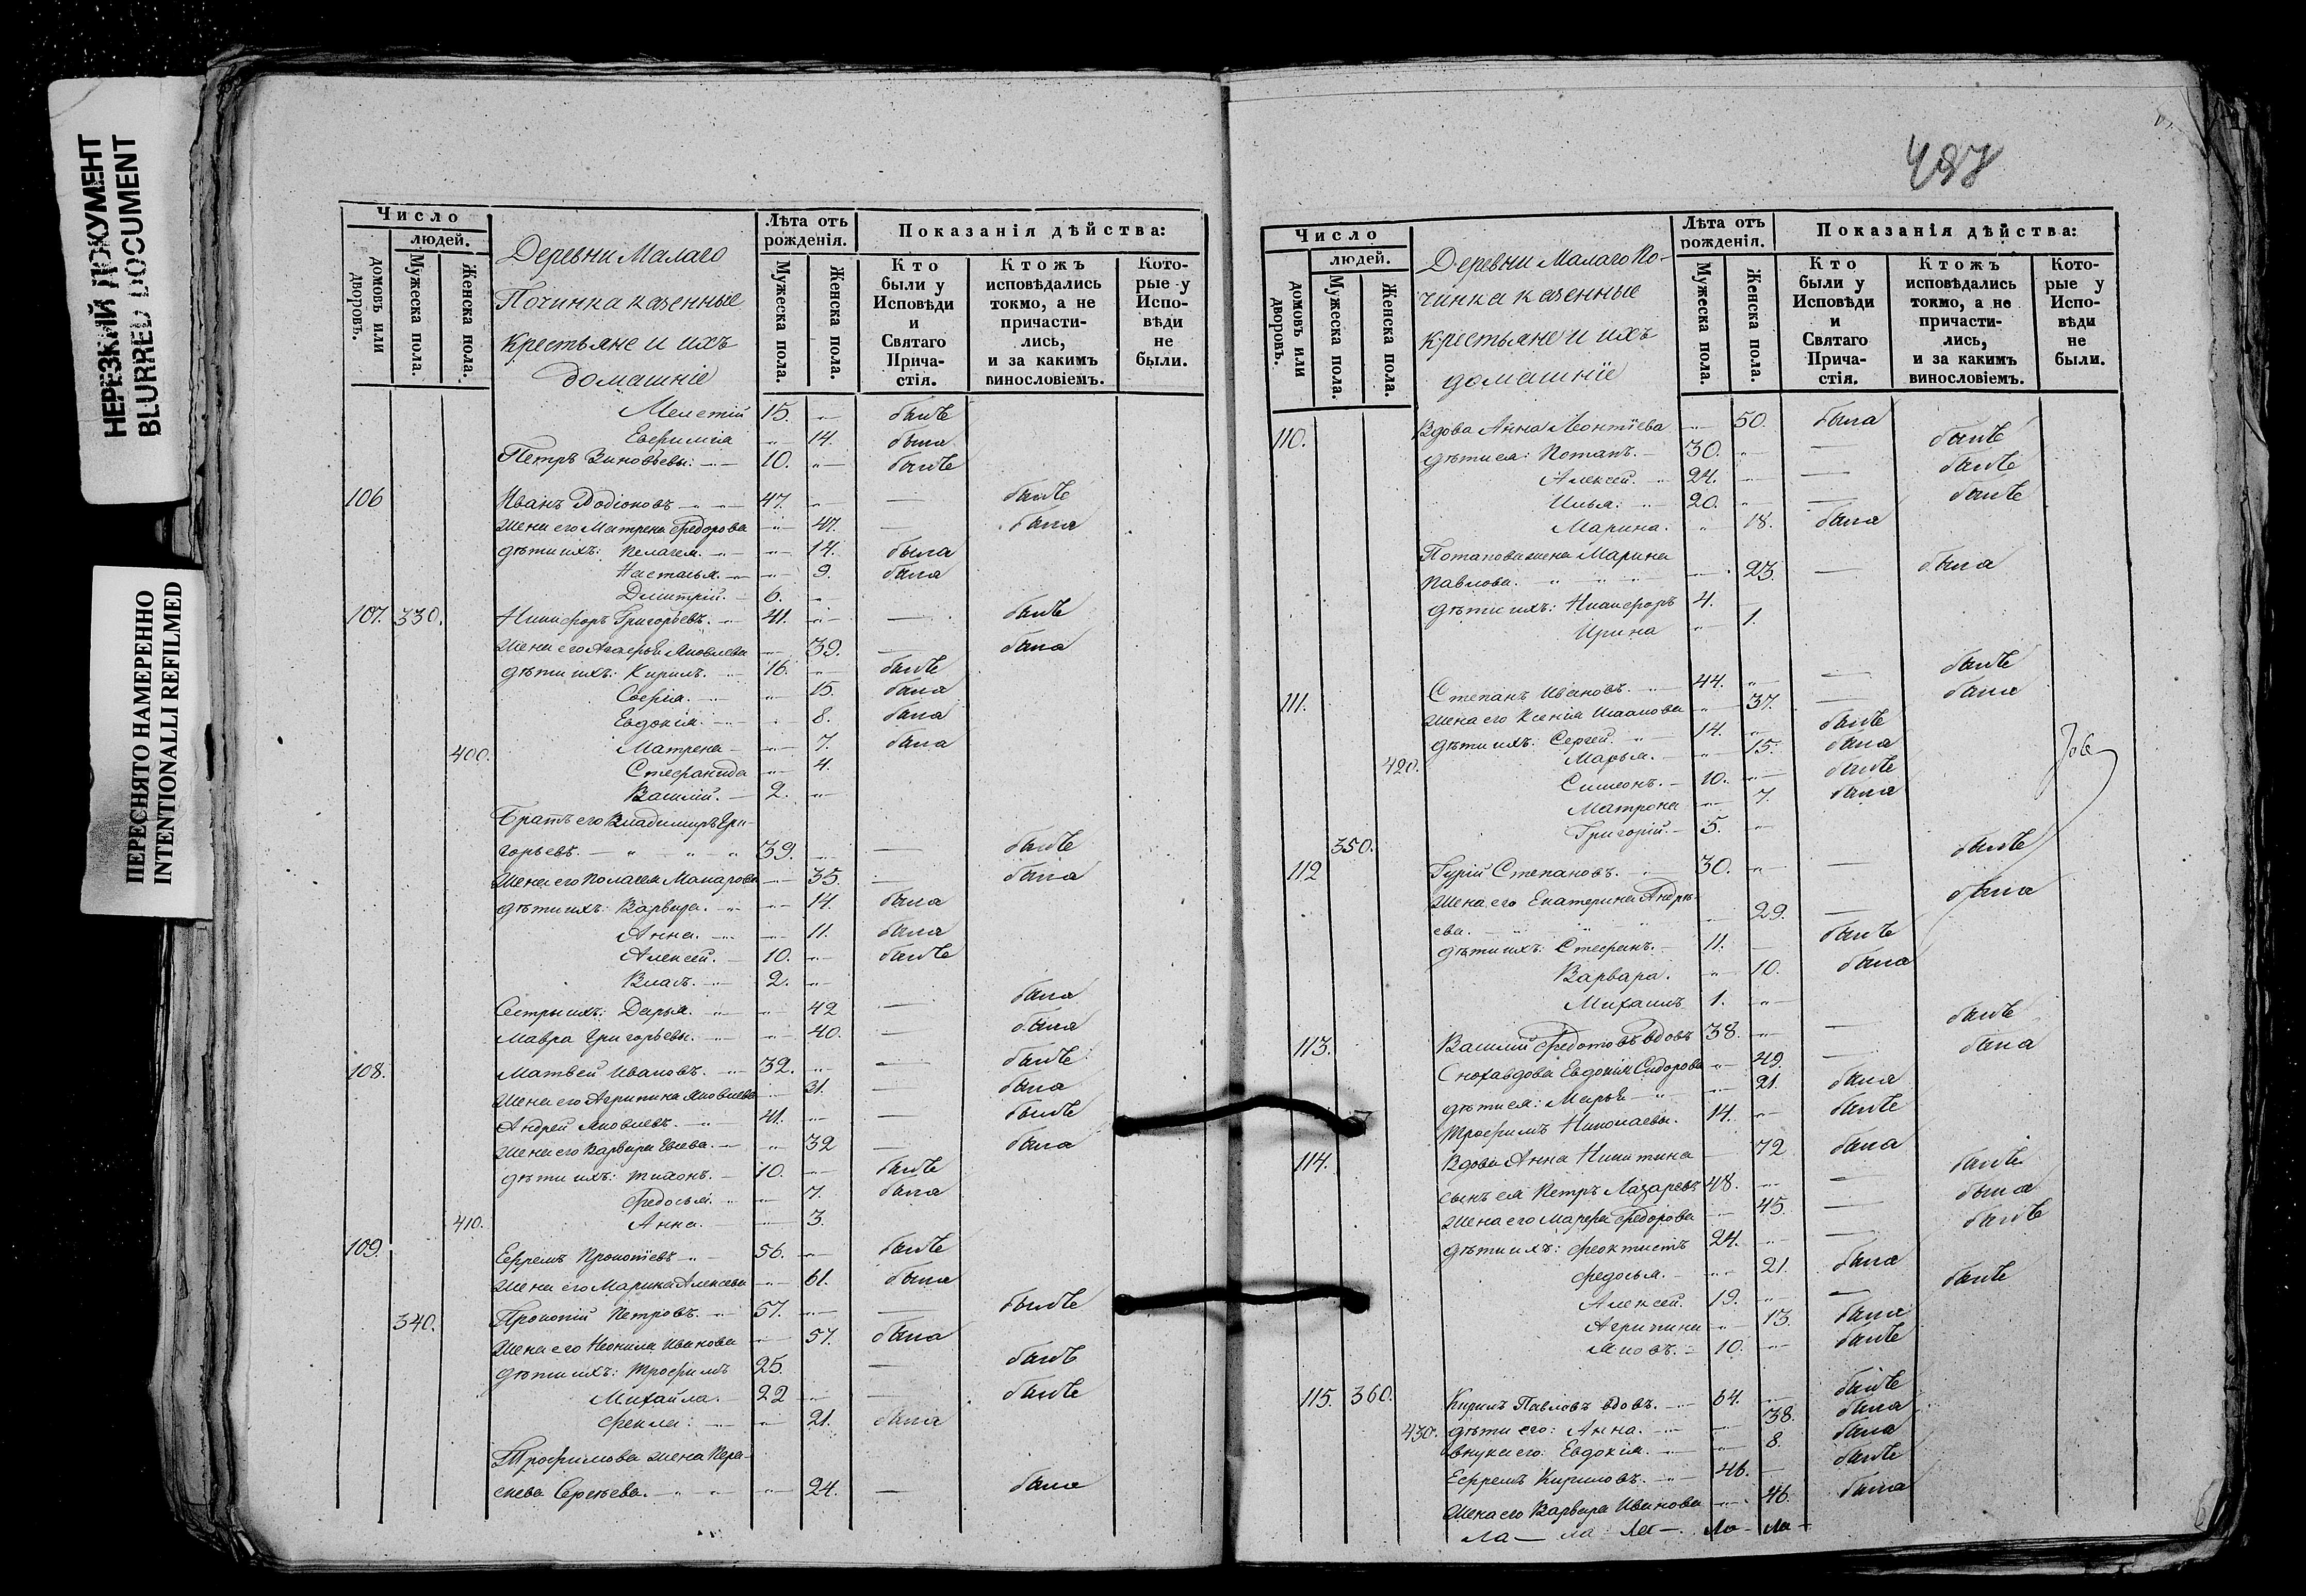 НЕРЕЗКИЙ ДОКУМЕНТ
BLURRED DOCUMENT
ПЕРЕСНЯТО НАМЕРЕННО
INTENTIONALLI REFILMED
Число
людей.
домовъ или дворовъ.
Мужеска пола.
Женска пола.
Деревни Малаго
Починка казенные
крестьяне и ихъ
домашніе
Лѣта отъ рожденія.
Мужеска пола.
Женска пола.
Показанія дѣйства:
Кто были у Исповѣди и Святаго Причастія.
Ктожъ исповѣдались токмо, а не причастились, и за какимъ винословіемъ.
Которые у Исповѣди не были.
Мелетій 15. былъ
Евфимія 14. была
Петръ Зиновьевы: 10. былъ
106 Иванъ Родіоновъ 47. былъ
Жена его Матрена Федорова 47. была
дѣти ихъ: Пелагея. 14. была
Настасья. 9. была
Дмитрій. 6.
107. 330. Никифоръ Григорьевъ. 41. былъ
Жена его Агафья Яковлева 39. была
дѣти ихъ: Кирилъ. 16. былъ
Софія. 15. была
Евдокія. 8. была
400. Матрена 7. была
Стефанида 4.
Василій. 2.
Братъ его Владимиръ Гри-
горьевъ. 39. былъ
Жена его Полагея Макарова 35. была
дѣти ихъ: Варвара. 14. была
Анна. 11. была
Алексей. 10. былъ
Власъ. 2.
Сестры ихъ: Дарья. 42 была
Мавра Григорьевы. 40. была
108. Матвей Ивановъ. 32. былъ
Жена его Агрипина Яковлева 31. была
Андрей Яковлевъ. 41. былъ
Жена его Варвара 32 была
дѣти ихъ: Тихонъ. 10. былъ
Федосья. 7. была
410. Анна. 3.
109. Ефремъ Прокопіевъ 56. былъ
Жена его Марина Алексеева 61. была
340. Прокопій Петровъ. 57. былъ
Жена его Неонила Иванова 57. была
дѣти ихъ: Трофимъ 25. былъ
Михайла. 22 былъ
Фекла: 21. была
Трофимова жена Пара-
скева Сергѣева. 24. была
497
Число
людей.
домовъ или дворовъ.
Мужеска пола.
Женска пола.
Деревни Малаго По-
чинка казенные
крестьяне и ихъ
домашніе
Лѣта отъ рожденія.
Мужеска пола.
Женска пола.
Показанія дѣйства:
Кто были у Исповѣди и Святаго Причастія.
Ктожъ исповѣдались токмо, а не причастились, и за какимъ винословіемъ.
Которые у Исповѣди не были.
110. Вдова Анна Леонтіева 50. была
дѣти ея: Потапъ. 30. былъ
Алексей. 24. былъ
Илья. 20. былъ
Марина. 18. была
Потапова жена Марина
Павлова. 23. была
дѣти ихъ: Никифоръ 4.
Ирина 1.
111. Степанъ Ивановъ. 44. былъ
Жена его Ксенія 37. была
дѣти ихъ: Сергей. 14. былъ
420. Марья. 15. была
Симеонъ. 10. былъ
Матрона 7. была
350. Григорій. 5.
112 Гурій Степановъ. 30. былъ
Жена его Екатерина Андрѣ-
ева. 29. была
дѣти ихъ: Стефанъ. 11. былъ
Варвара. 10. была
Михаилъ 1.
113. Василій Федотовъ вдовъ 38. былъ
Сноха вдова Евдокія Сидорова 49. была
дѣти ея: Марья 21. была
Трофимъ Николаевы. 14. былъ
114. Вдова Анна Никитина 72 была
сынъ ея Петръ Лазаревъ 48. былъ
Жена его Марфа Федорова 45. была
дѣти ихъ: Феоктистъ 24. былъ
Федосья. 21. была
Алексей. 19. былъ
Агрипина 13. была
Яковъ. 10. былъ
115. 360. Кирилъ Павловъ вдовъ. 64. былъ
430. дѣти его: Анна. 38. была
внука его: Евдокія. 8. была
Ефремъ Кириловъ. 46. былъ
Жена его Варвара Иванова 46. была